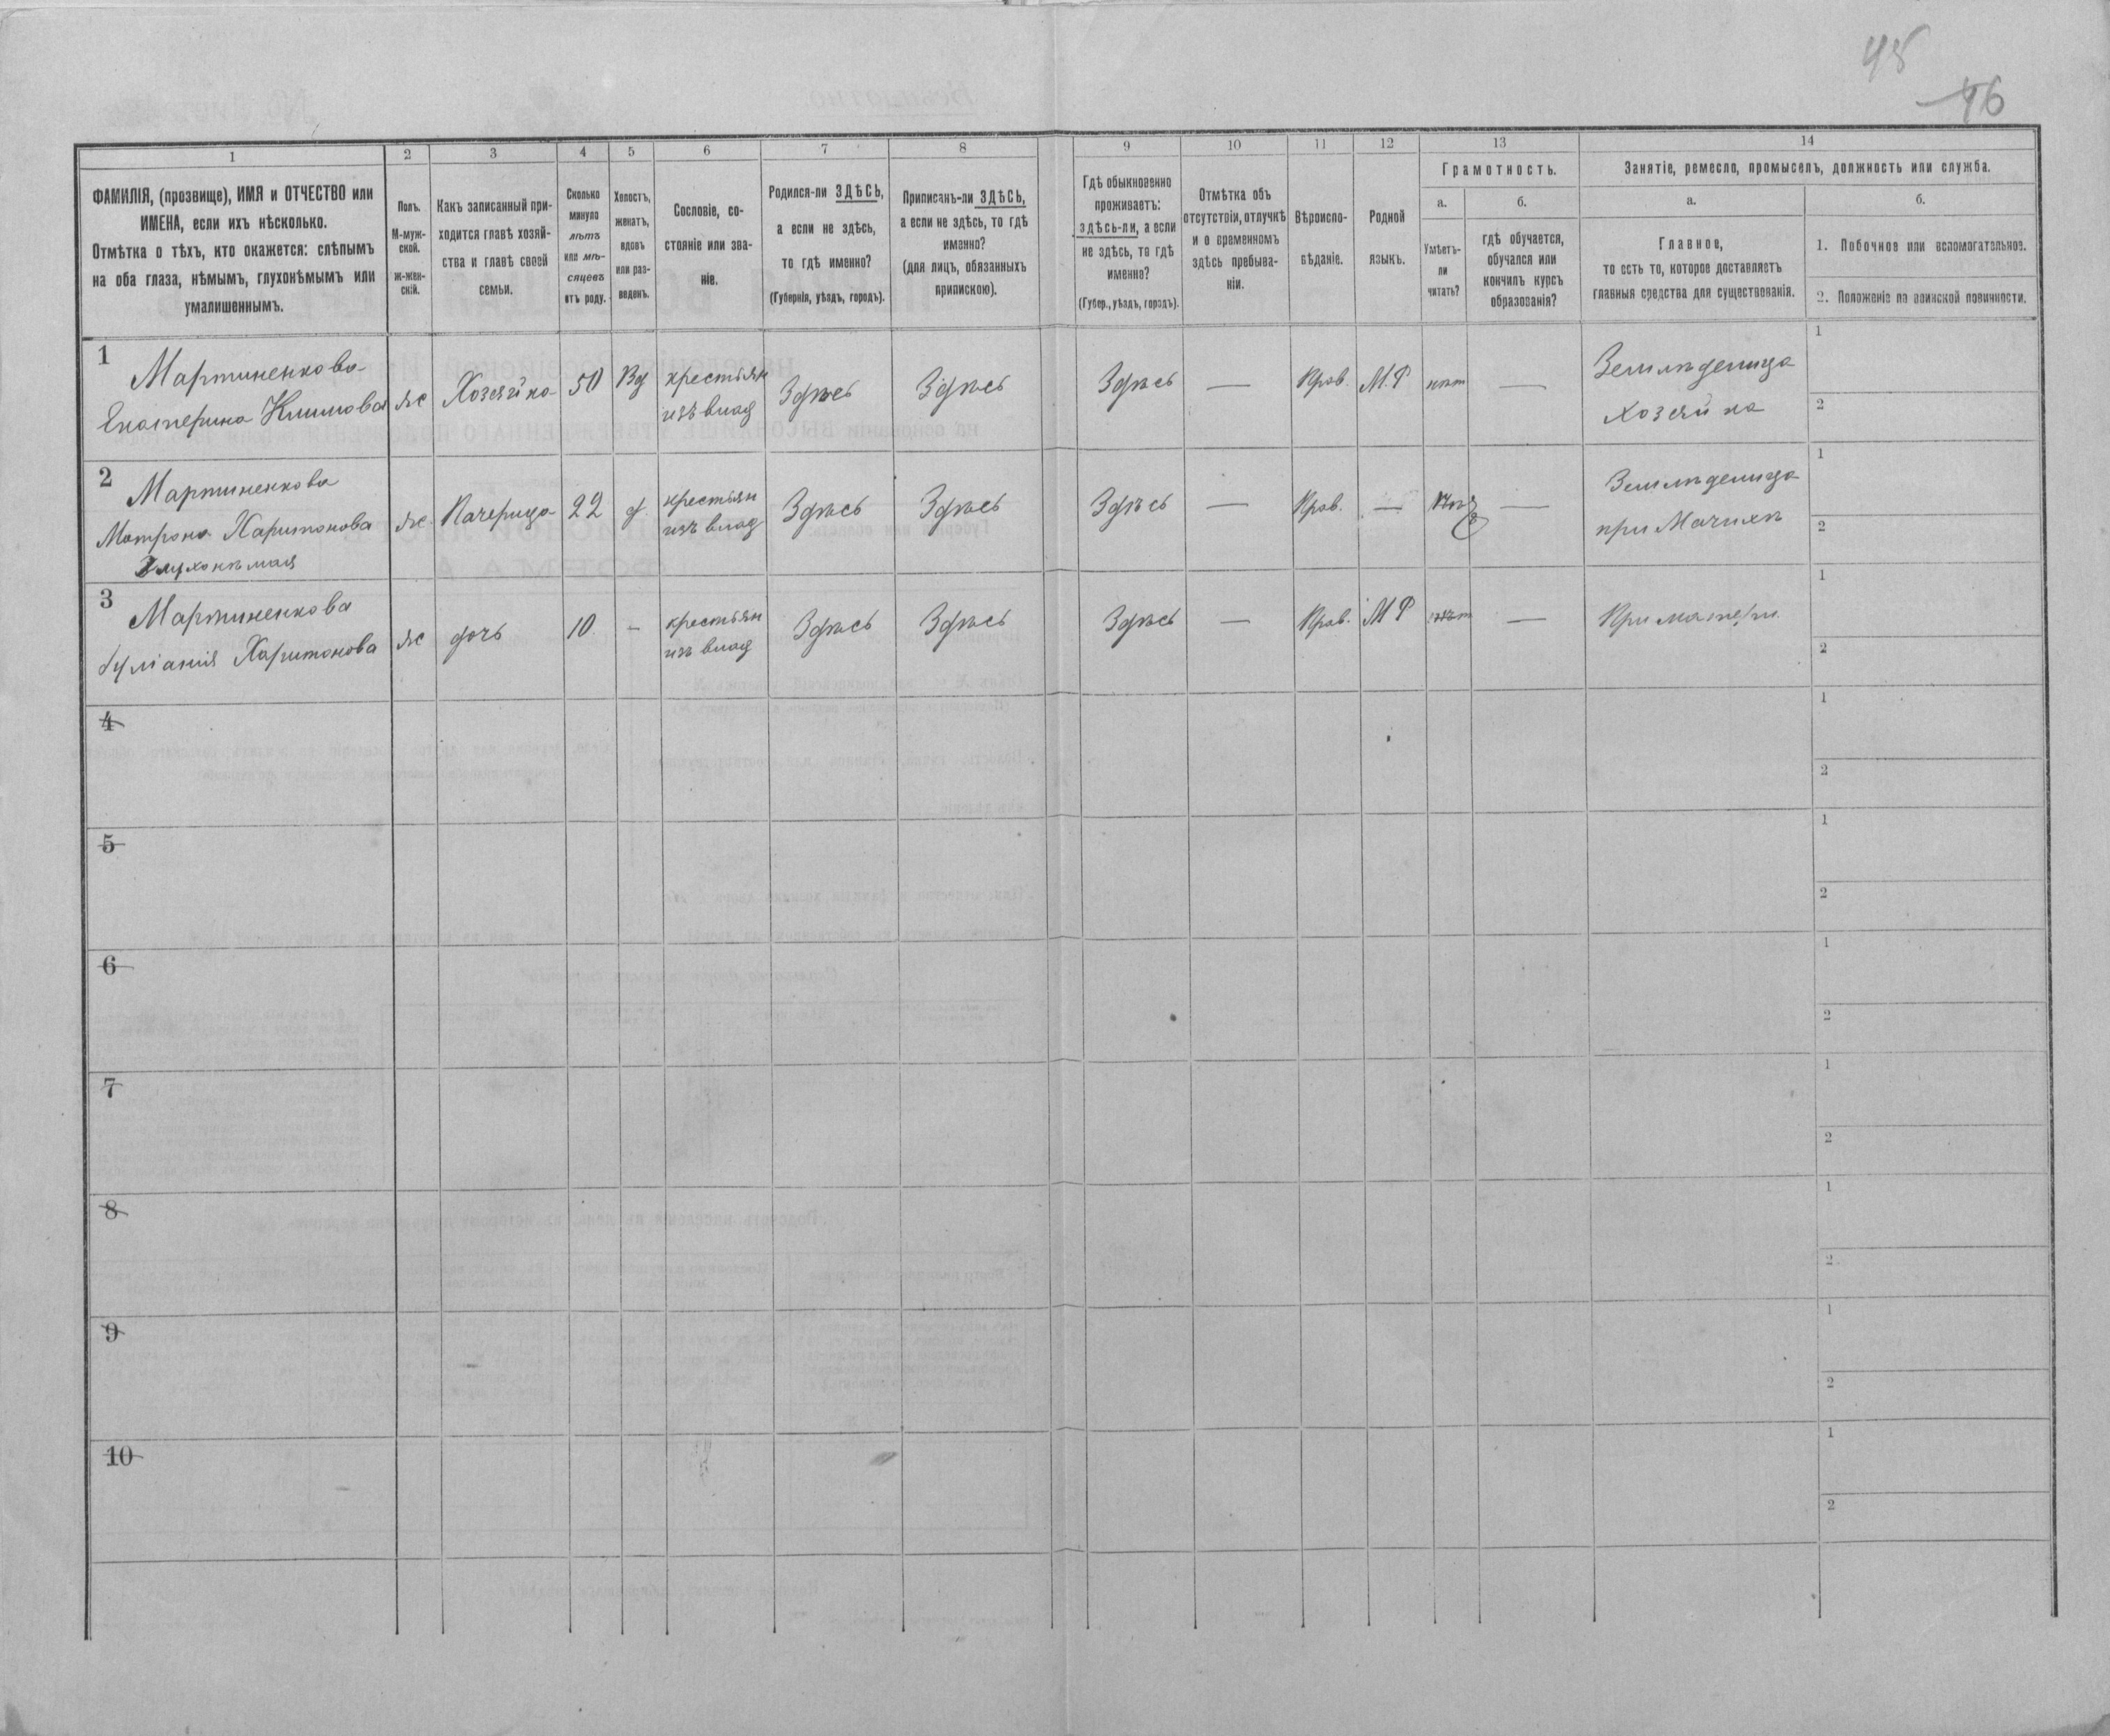 45
46
1 2 3 4 5 6 7 8 9 10 11 12 13 14
ФАМИЛІЯ, (прозвище), ИМЯ и ОТЧЕСТВО или
ИМЕНА, если ихъ нѣсколько.
Отмѣтка о тѣхъ, кто окажется: слѣпымъ
на оба глаза, нѣмымъ, глухонѣмымъ или
умалишеннымъ.
Полъ.
М-муж-
ской.
ж-жен-
скій.
Какъ записанный при-
ходится главѣ хозяй-
ства и главѣ своей
семьи.
Сколько
минуло
лѣтъ
или мѣ-
сяцевъ
отъ роду.
Холостъ,
женатъ,
вдовъ
или раз-
веденъ.
Сословіе, со-
стояніе или зва-
ніе.
Родился-ли ЗДѢСЬ,
а если не здѣсь,
то гдѣ именно?
(Губернія, уѣздъ, городъ).
Приписанъ-ли ЗДѢСЬ,
а если не здѣсь, то гдѣ
именно?
(для лицъ, обязанныхъ
припискою).
Гдѣ обыкновенно
проживаетъ:
здѣсь-ли, а если
не здѣсь, то гдѣ
именно?
(Губер., уѣздъ, городъ).
Отмѣтка объ
отсутствіи, отлучкѣ
и о временномъ
здѣсь пребыва-
ніи.
Вѣроиспо-
вѣданіе.
Родной
языкъ.
Грамотность.
а.
Умѣетъ-
ли
читать?
б.
гдѣ обучается,
обучался или
кончилъ курсъ
образованія?
Занятіе, ремесло, промыселъ, должность или служба.
а.
Главное,
то есть то, которое доставляетъ
главныя средства для существованія.
б.
1. Побочное или вспомогательное.
2. Положеніе по воинской повинности.
1
Мартиненкова
Екатерина Климова
ж
Хозяйка
50
Вд
крестьян
изъ влад
Здѣсь
Здѣсь
Здѣсь
—
Прав.
М.Р
нѣт
—
Земледелица
Хозяйка
1
2
2
Мартиненкова
Матрона Харитонова
Глухонѣмая
ж
Пачерица
22
д.
крестьян
изъ влад
Здѣсь
Здѣсь
Здѣсь
—
Прав.
—
—
Земледелица
при Мачихѣ
1
2
3
Мартиненкова
Харитонова
ж
дочь
10
—
крестьян
изъ влад
Здѣсь
Здѣсь
Здѣсь
—
Прав.
М Р
нѣт
—
При матери.
1
2
4
1
2
5
1
2
6
1
2
7
1
2
8
1
2
9
1
2
10
1
2